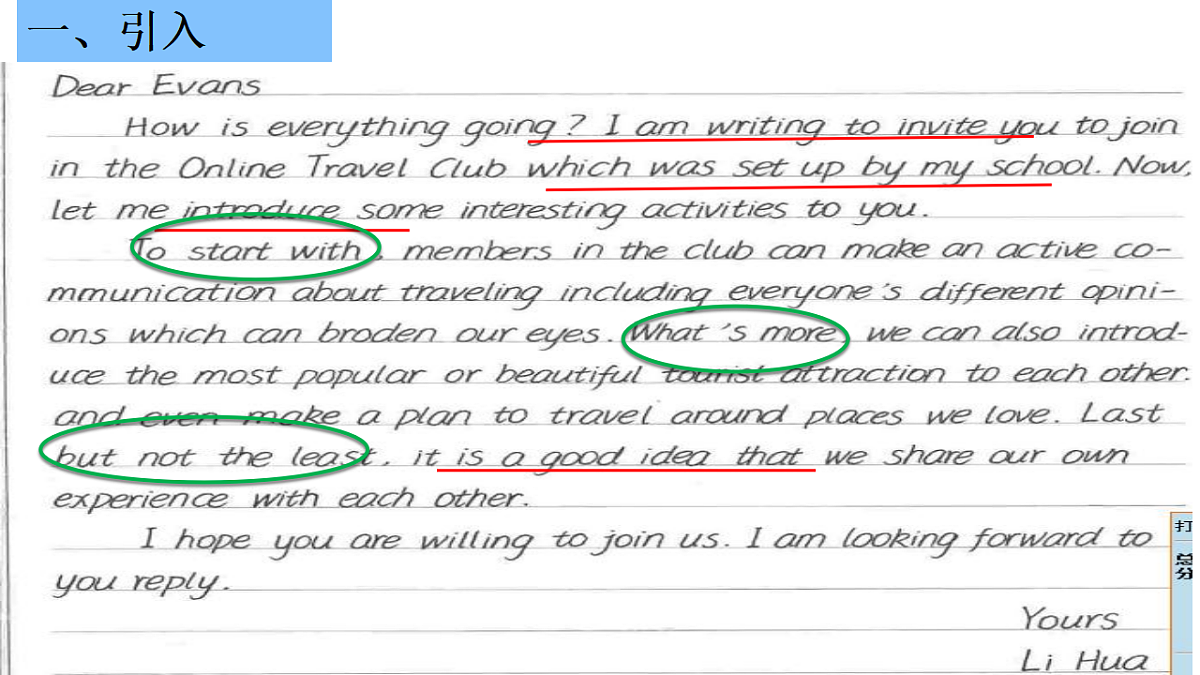 一、引入
Dear Evans
How is everything going? I am writing to invite you to join
in the Online Travel Club which was set up by my school. Now,
let me introduce some interesting activities to you.
To start with, members in the club can make an active co-
mmunication about traveling including everyone's different opini-
ons which can broden our eyes. What's more, we can also introd-
uce the most popular or beautiful tourist attraction to each other.
and even make a plan to travel around places we love. Last
but not the least, it is a good idea that we share our own
experience with each other.
I hope you are willing to join us. I am looking forward to
you reply.
Yours
Li Hua
打
总
分